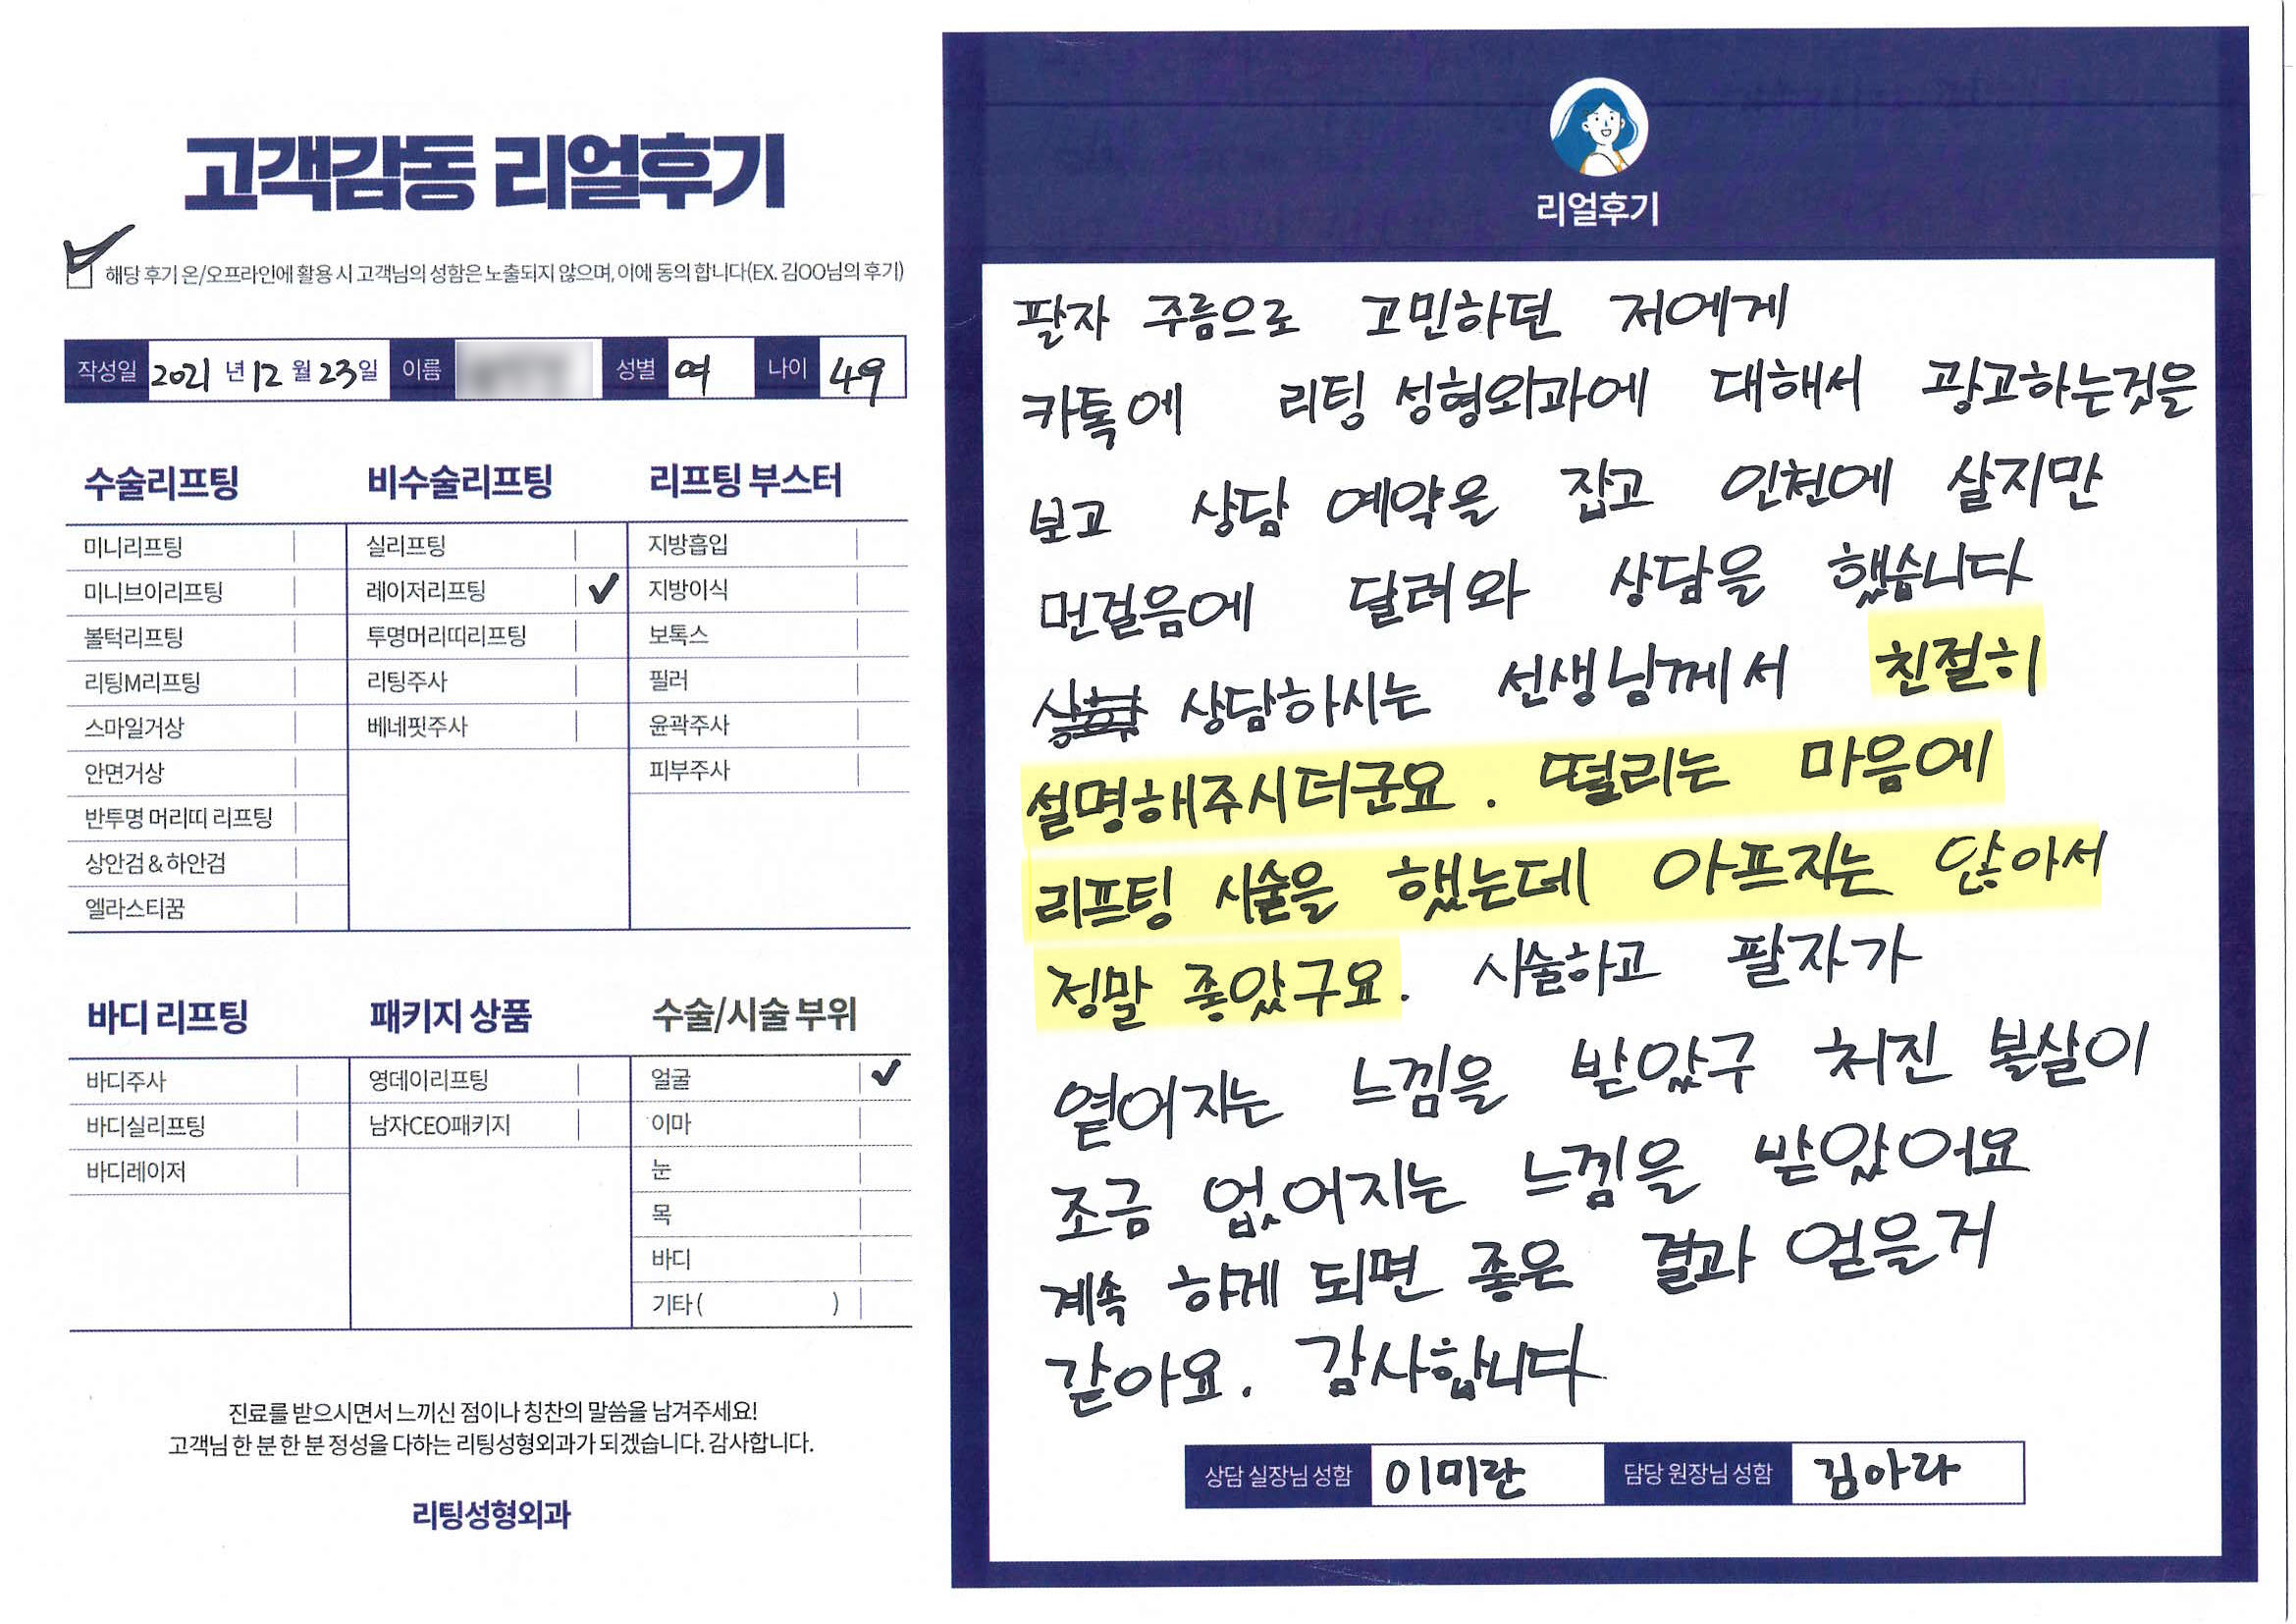 고객감동 리얼후기
해당 후기 온/오프라인에 활용 시 고객님의 성함은 노출되지 않으며, 이에 동의 합니다(EX. 김OO님의 후기)
작성일 2021 년 12 월 23일 이름 성별 여 나이 49
수술리프팅
미니리프팅
미니브이리프팅
볼턱리프팅
리팅M리프팅
스마일거상
안면거상
반투명 머리띠 리프팅
상안검&하안검
엘라스티꿈
비수술리프팅
실리프팅
레이저리프팅 ✓
투명머리띠리프팅
리팅주사
베네핏주사
리프팅 부스터
지방흡입
지방이식
보톡스
필러
윤곽주사
피부주사
바디 리프팅
바디주사
바디실리프팅
바디레이저
패키지 상품
영데이리프팅
남자CEO패키지
수술/시술 부위
얼굴 ✓
이마
눈
목
바디
기타 ( )
진료를 받으시면서 느끼신 점이나 칭찬의 말씀을 남겨주세요!
고객님 한 분 한 분 정성을 다하는 리팅성형외과가 되겠습니다. 감사합니다.
리팅성형외과
리얼후기
팔자 주름으로 고민하던 저에게
카톡에 리팅 성형외과에 대해서 광고하는것을
보고 상담 예약을 잡고 인천에 살지만
먼걸음에 달려와 상담을 했습니다
상담하시는 선생님께서 친절히
설명해주시더군요. 떨리는 마음에
리프팅 시술을 했는데 아프지는 않아서
정말 좋았구요. 시술하고 팔자가
옅어지는 느낌을 받았구 처진 볼살이
조금 없어지는 느낌을 받았어요
계속 하게 되면 좋은 결과 얻을거
같아요. 감사합니다
상담 실장님 성함 이미란 담당 원장님 성함 김아라